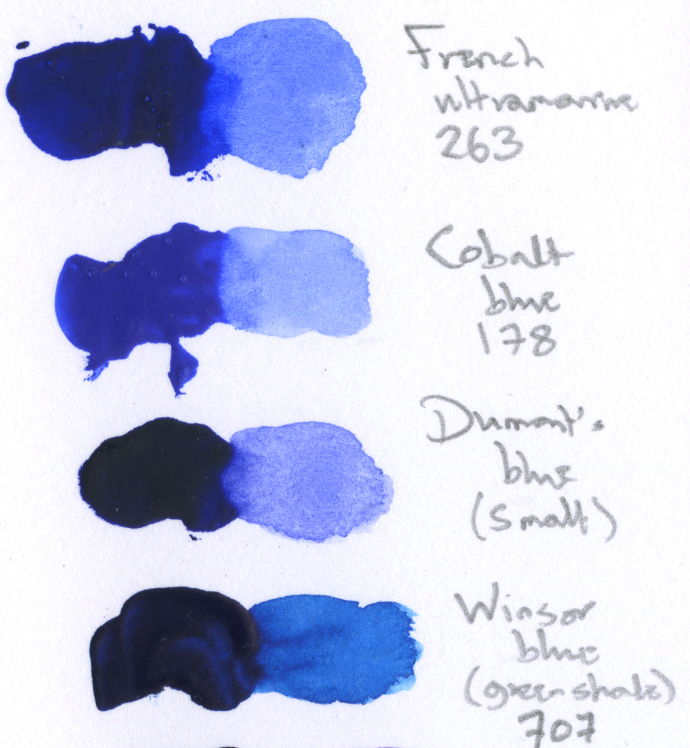 French
ultramarine
263
Cobalt
blue
178
Dumont's
blue
(Smalt)
Winsor
blue
(green shade)
707